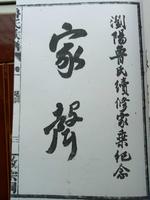 瀏陽魯氏續修家乘紀念
家聲